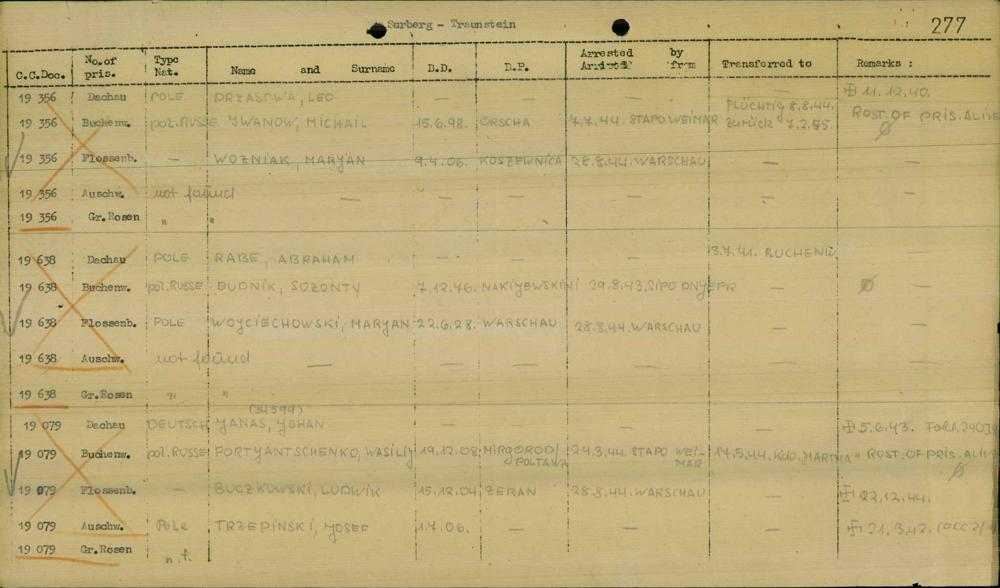 Surberg - Traunstein
277
C.C.Doc. No. of pris. Type Nat. Name and Surname B.D. B.P. Arrested by Arrived from Transferred to Remarks :
19 356 Dachau POLE DRZASTWA, LEO — — — ✠ 11.12.40.
19 356 Buchenw. pol.RUSSE JWANOW, MICHAIL 15.6.98. ORSCHA 7.7.44. STAPO WEIMAR FLÜCHTIG 8.8.44. zurück 7.2.45 ROST. OF PRIS. ALIVE
19 356 Flossenb. — WOZNIAK, MARYAN 9.4.06. KOSZEWNICA 28.8.44. WARSCHAU — —
19 356 Auschw. not found — — — — — —
19 356 Gr.Rosen " "
19 638 Dachau POLE RABE, ABRAHAM — — — 3.7.41. BUCHENW.
19 638 Buchenw. pol.RUSSE BUDNIK, SOZONTY 7.12.76. NAKIYEWSKINI 29.8.43. SIPO DNYEPR —
19 638 Flossenb. POLE WOYCIECHOWSKI, MARYAN 22.6.28. WARSCHAU 28.8.44. WARSCHAU — —
19 638 Auschw. not found — — — — — —
19 638 Gr.Rosen " "
(34599)
19 079 Dachau DEUTSCH YANAS, YOHAN — — — — ✠ 5.6.43.
19 079 Buchenw. pol.RUSSE PORTYANTSCHENKO, WASILIY 19.12.08. MIRGOROD/ POLTAWA 24.3.44. STAPO WEI- MAR 14.5.44. Kdo. MARTHA ROST. OF PRIS. ALIVE
19 079 Flossenb. — BUCZKOWSKI, LUDWIK 15.12.04. ZERAN 28.8.44. WARSCHAU — ✠ 22.12.44.
19 079 Auschw. Pole TRZEPINSKI, YOSEF 1.7.06. — — — ✠ 21.3.42.
19 079 Gr.Rosen n.f.